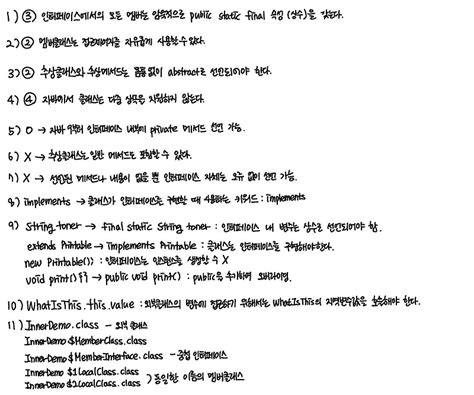 1) ③ 인터페이스에서의 모든 멤버는 암묵적으로 public static final 속성 (상수)을 갖는다.
2) ② 멤버클래스는 접근제어자를 자유롭게 사용할 수 있다.
3) ② 추상클래스와 추상메서드는 몸통 없이 abstract로 선언되어야 한다.
4) ④ 자바에서 클래스는 다중 상속을 지원하지 않는다.
5) O → 자바 9부터 인터페이스 내부에 private 메서드 선언 가능.
6) X → 추상클래스는 일반 메서드도 포함할 수 있다.
7) X → 선언된 메서드나 내용이 없을 뿐 인터페이스 자체는 오류 없이 선언 가능.
8) implements → 클래스가 인터페이스를 구현할 때 사용하는 키워드 : implements
9) String toner → final static String toner : 인터페이스 내 변수는 상수로 선언되어야 함.
extends Printable → implements Printable : 클래스는 인터페이스를 구현해야한다.
new Printable(); : 인터페이스는 인스턴스를 생성할 수 X
void print() {} → public void print() : public을 추가하여 오버라이딩.
10) WhatIsThis.this.value : 외부클래스의 변수에 접근하기 위해서는 WhatIsThis의 지역변수값을 호출해야 한다.
11) InnerDemo.class - 외부 클래스
InnerDemo$MemberClass.class
InnerDemo$MemberInterface.class - 중첩 인터페이스
InnerDemo$1LocalClass.class
InnerDemo$2LocalClass.class ) 동일한 이름의 멤버클래스